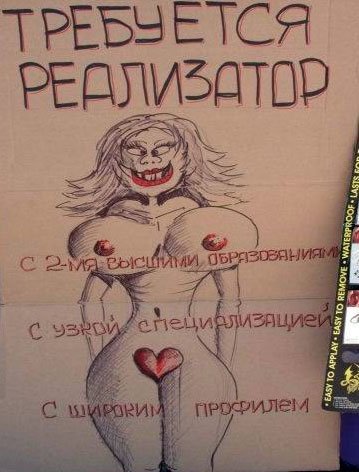 ТРЕБУЕТСЯ
РЕАЛИЗАТОР
С 2-МЯ ВЫСШИМИ ОБРАЗОВАНИЯМИ
С УЗКОЙ СПЕЦИАЛИЗАЦИЕЙ
С ШИРОКИМ ПРОФИЛЕМ
• EASY TO APPLY • EASY TO REMOVE • WATERPROOF • LASTS FOR